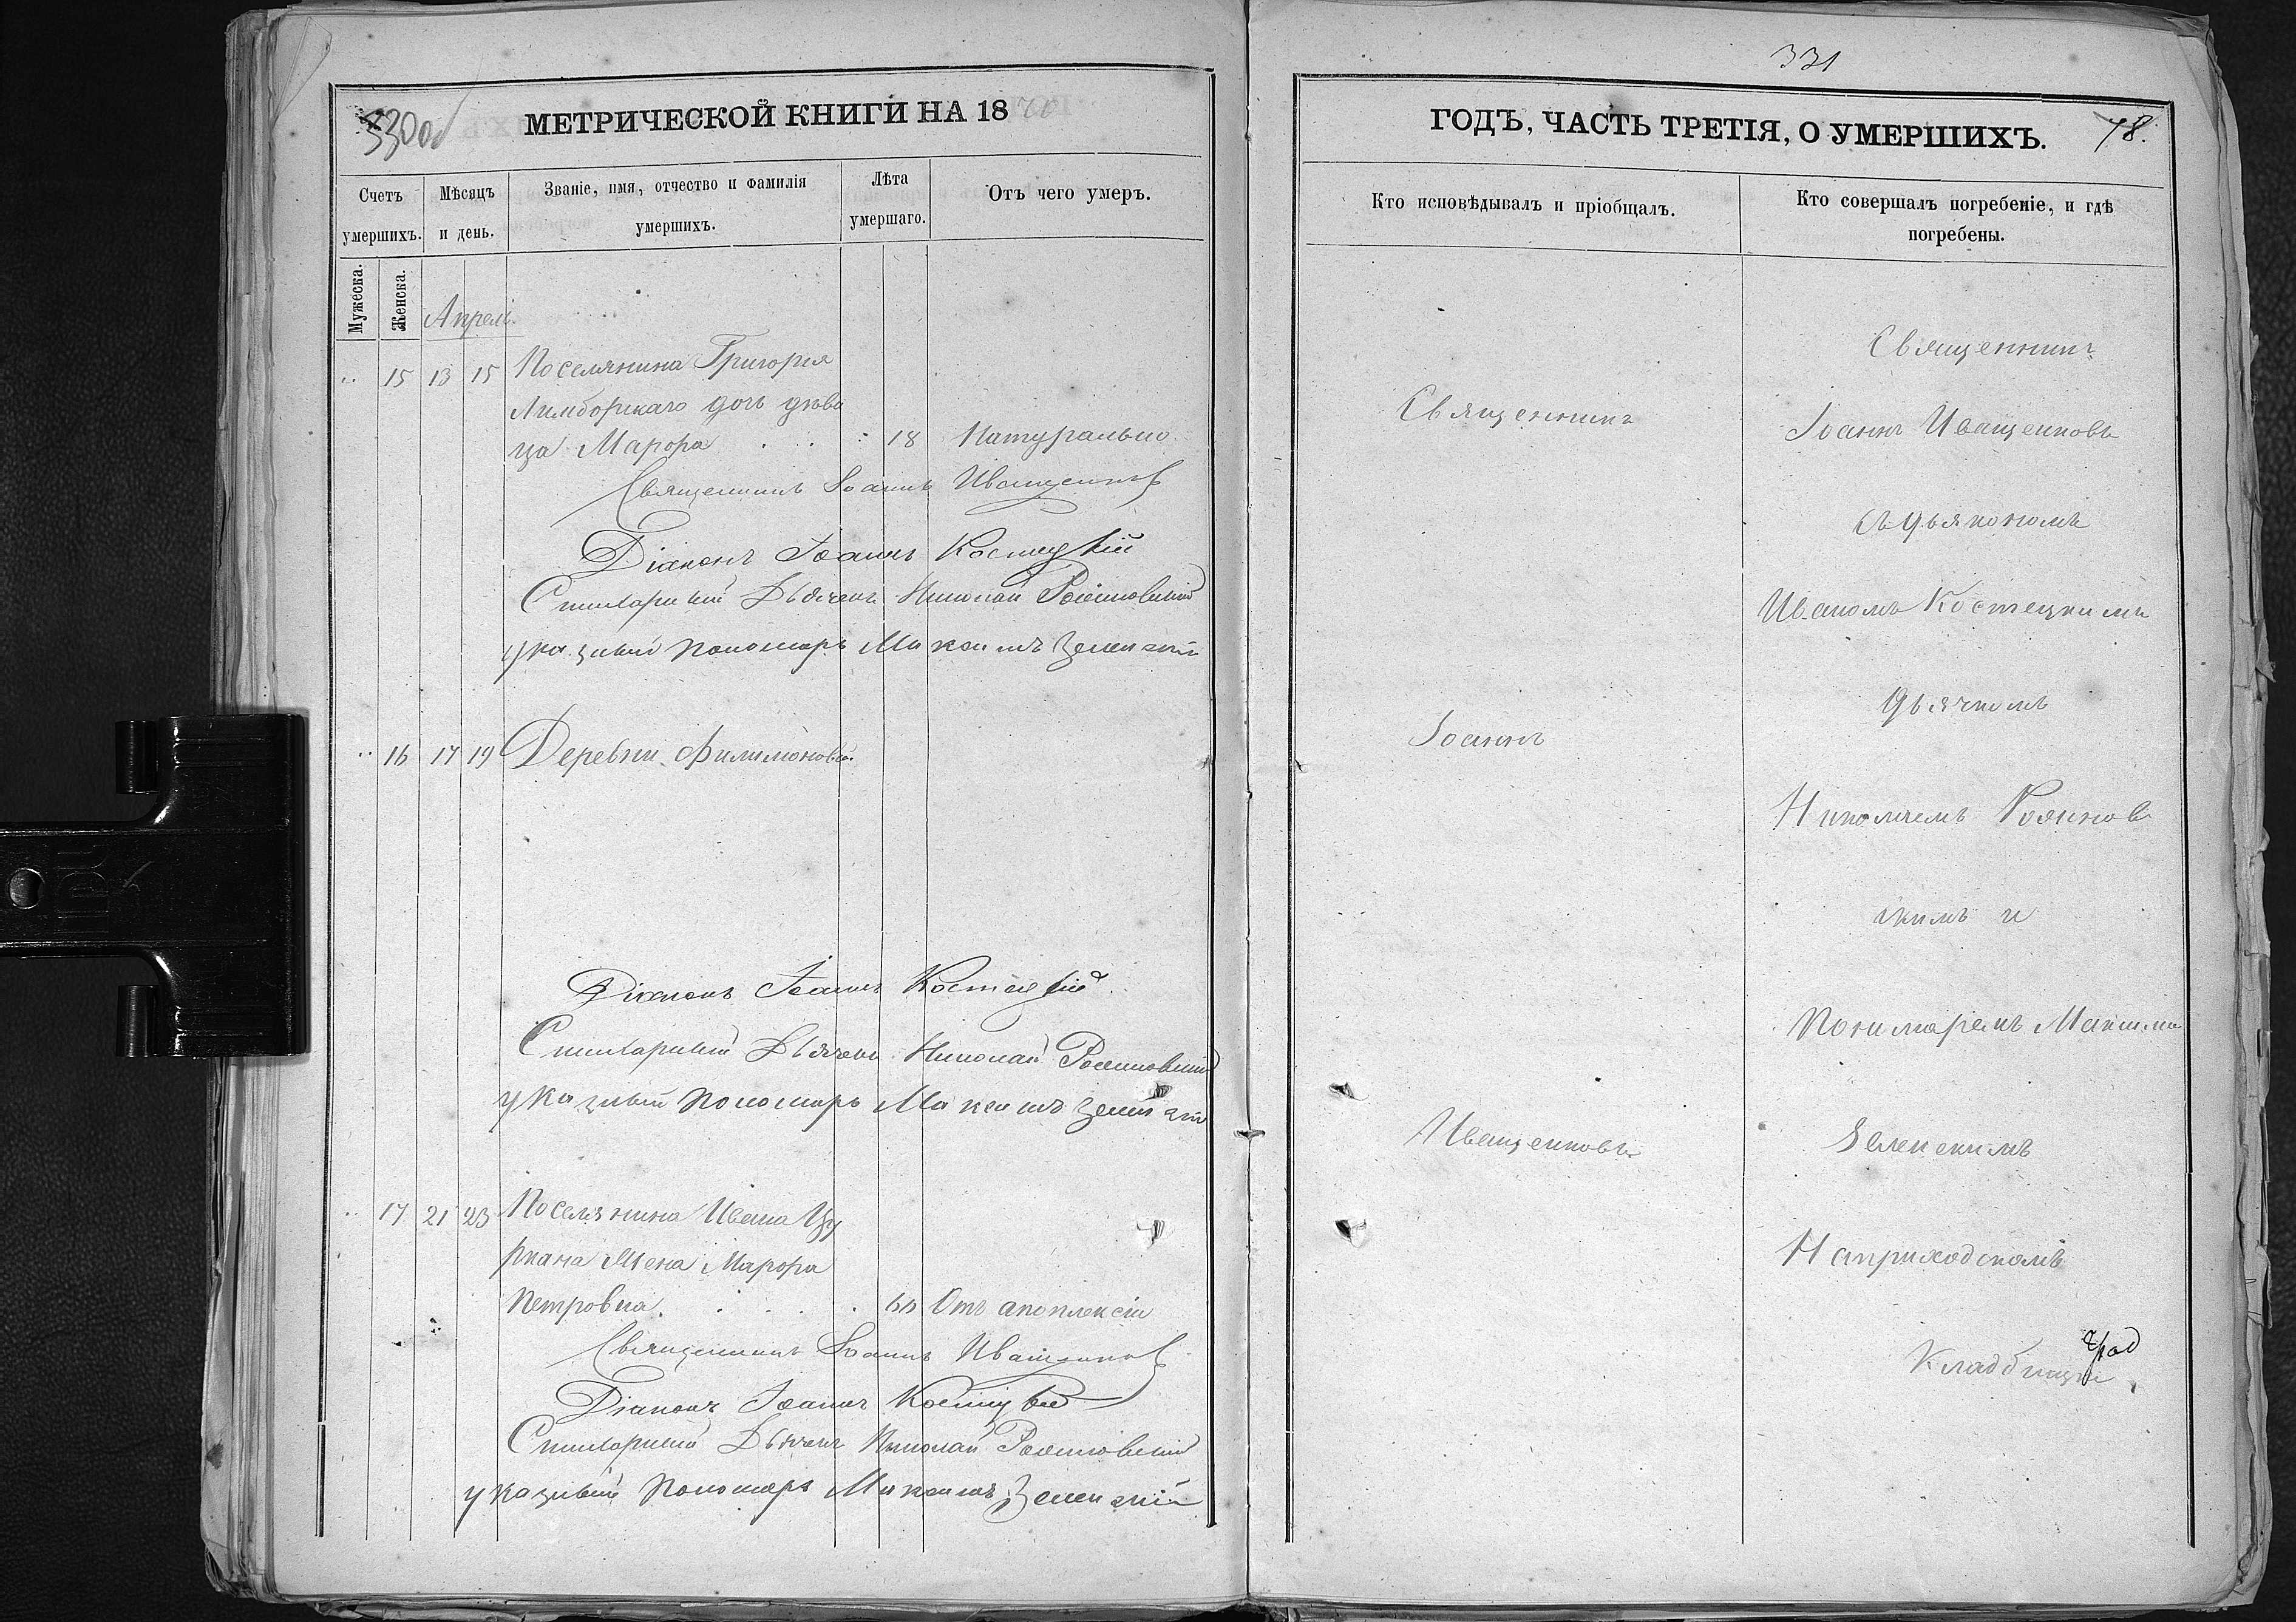 330об
МЕТРИЧЕСКОЙ КНИГИ НА 18
Счетъ умершихъ.
Мѣсяцъ и день.
Званіе, имя, отчество и фамилія умершихъ.
Лѣта умершаго.
Отъ чего умеръ.
Мужеска.
Женска.
Апрель
15 13 15 Поселянина Григорія
дочь дѣви
ца Марфа 18 Натурально
Священникъ Іоаннъ Иващенковъ
Діаконъ Іоаннъ Костецкій
Стихарный Дьячекъ Николай
указный пономарь Максимъ Зеленскій
16 17 19 Деревни Филимоновки
Діаконъ Іоаннъ Костецкій
Стихарный Дьячекъ Николай
указный пономарь Максимъ Зеленскій
17 21 23 Поселянина Ивана Цу
ркана Жена Марфа
Петровна 60 Отъ апоплексіи
Священникъ Іоаннъ Иващенковъ
Діаконъ Іоаннъ Костецкій
Стихарный Дьячекъ Николай
указный Пономарь Максимъ Зеленскій
331
ГОДЪ, ЧАСТЬ ТРЕТІЯ, О УМЕРШИХЪ.
78.
Кто исповѣдывалъ и пріобщалъ.
Кто совершалъ погребеніе, и гдѣ
погребены.
Священникъ
Священникъ
Іоаннъ Иващенковъ
съ дьякономъ
Иваномъ Костецкимъ
дьячкомъ
Іоаннъ
Николаемъ
скимъ и
Пономаремъ Максимо
Иващенковъ
Зеленскимъ
На приходскомъ
Кладбищѣ